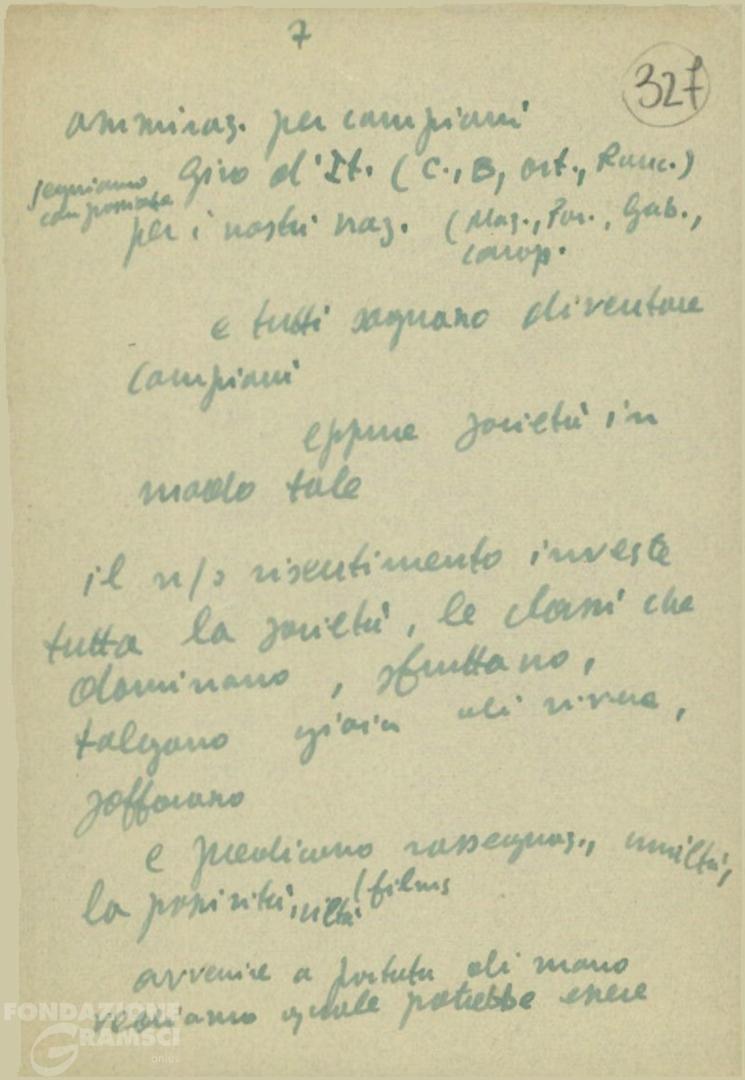 7
327
ammiraz. per campioni
seguiamo Giro d'It. (C., B., Ort., Ronc.)
con passione
per i nostri naz. (Mag., Par., Gab.,
Carap.
e tutti sognano diventare
campioni
eppure società in
modo tale
il n/s risentimento investe
tutta la società, le classi che
dominano, sfruttano,
tolgono gioia di vivere,
soffocano
e predicano rassegnaz., umiltà,
la passività, viltà (films
avvenire a portata di mano
vediamo quale potrebbe essere
FONDAZIONE
GRAMSCI
onlus